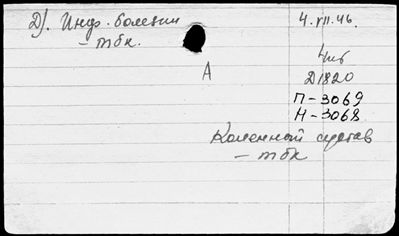 Д). Инф. болезни 4.VII.46.
– тбк.
А
Д1820
П – 3069
Н – 3068
Коленный сустав
– тбк